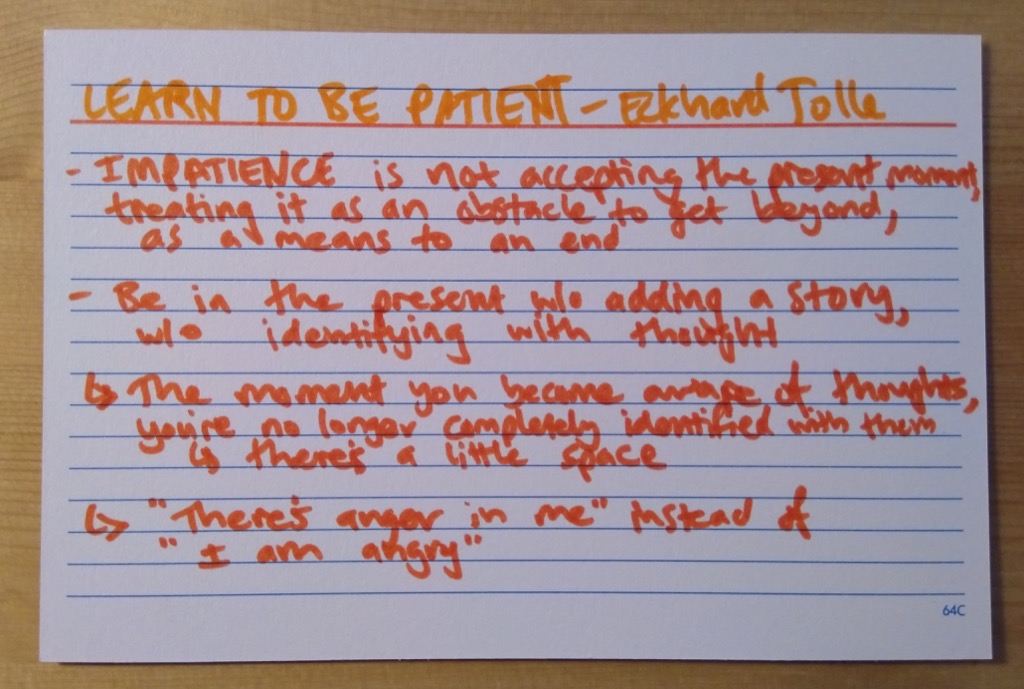 LEARN TO BE PATIENT - Eckhard Tolle
- IMPATIENCE is not accepting the present moment,
treating it as an obstacle to get beyond,
as a means to an end
- Be in the present w/o adding a story,
w/o identifying with thought
↳ The moment you become aware of thoughts,
you're no longer completely identified with them
↳ there's a little space
↳ "There's anger in me" instead of
"I am angry"
64C